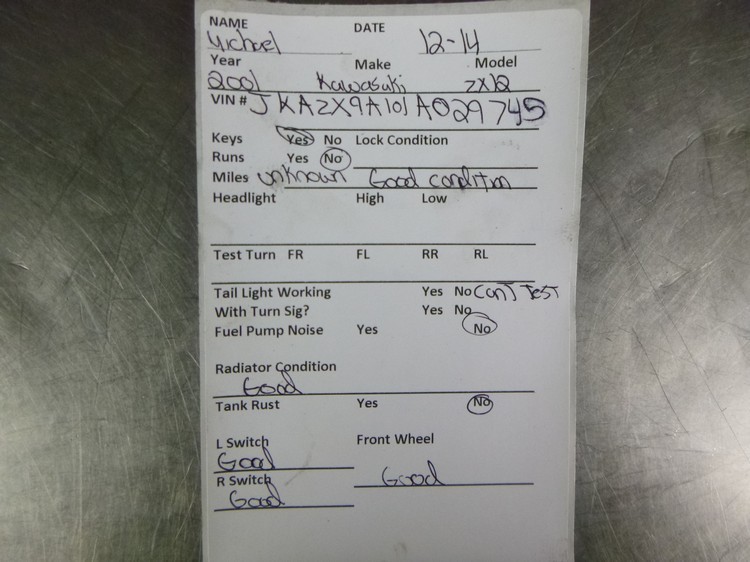 NAME DATE
Michael 12-14
Year Make Model
2001 Kawasaki ZX12
VIN # JKAZX9A101A029745
Keys Yes No Lock Condition
Runs Yes No
Miles unknown Good condition
Headlight High Low
Test Turn FR FL RR RL
Tail Light Working Yes No Can't Test
With Turn Sig? Yes No
Fuel Pump Noise Yes No
Radiator Condition
Good
Tank Rust Yes No
L Switch Front Wheel
Good
R Switch Good
Good